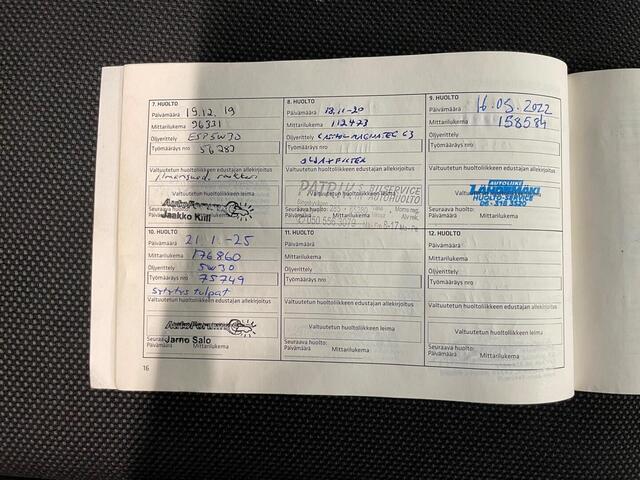 7. HUOLTO
Päivämäärä 19.12.19
Mittarilukema 96331
Öljyerittely ESP 5W30
Työmääräys nro 56283
Valtuutetun huoltoliikkeen edustajan allekirjoitus
Valtuutetun huoltoliikkeen leima
AutoForum
Jaakko Kiili
8. HUOLTO
Päivämäärä 13.11-20
Mittarilukema 112473
Öljyerittely CASTROL MAGNATEC C3
Työmääräys nro
ÖLJY+FILTER
Valtuutetun huoltoliikkeen edustajan allekirjoitus
Valtuutetun huoltoliikkeen leima
AUTOHUOLTO
050 556 3079
8-17
Seuraava huolto:
Päivämäärä
9. HUOLTO
Päivämäärä 16.05.2022
Mittarilukema 158584
Öljyerittely
Työmääräys nro
Valtuutetun huoltoliikkeen edustajan allekirjoitus
AUTOLIIKE
HUOLTO-SERVICE
Seuraava huolto:
Päivämäärä Mittarilukema
10. HUOLTO
Päivämäärä 21.1.-25
Mittarilukema 176860
Öljyerittely 5W30
Työmääräys nro 75749
Sytytys tulpat
Valtuutetun huoltoliikkeen edustajan allekirjoitus
AutoForum
Jarno Salo
Päivämäärä Mittarilukema
11. HUOLTO
Päivämäärä
Mittarilukema
Öljyerittely
Työmääräys nro
Valtuutetun huoltoliikkeen edustajan allekirjoitus
Valtuutetun huoltoliikkeen leima
Seuraava huolto:
Päivämäärä Mittarilukema
12. HUOLTO
Päivämäärä
Mittarilukema
Öljyerittely
Työmääräys nro
Valtuutetun huoltoliikkeen edustajan allekirjoitus
Valtuutetun huoltoliikkeen leima
Seuraava huolto:
Päivämäärä Mittarilukema
16